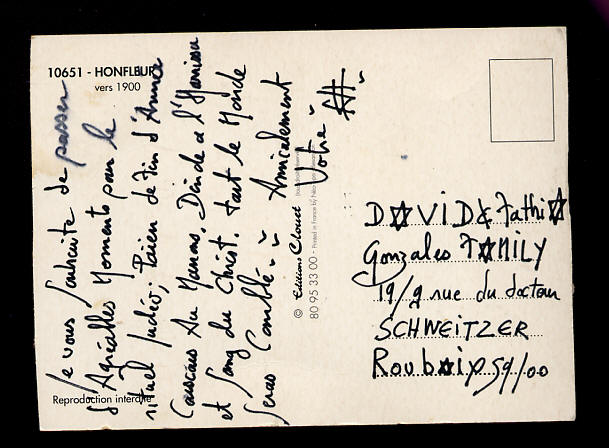 10651 - HONFLEUR
vers 1900
Je vous souhaite de passer
d'Agréables Moments pour le
rituel judéo, Païen de Fin d'Année
Couscous Au Marrons, Dinde a l'Harissa
et Sang du Christ. tout le Monde
Seras Comblé.
Amicalement
Votre
© Editions Clouet
80 95 33 00 - Printed in France by
D☆VID & Fathi☆
Gonzales F☆MILY
19/9 rue du docteur
SCHWEITZER
Roub☆ix 59100
Reproduction interdite